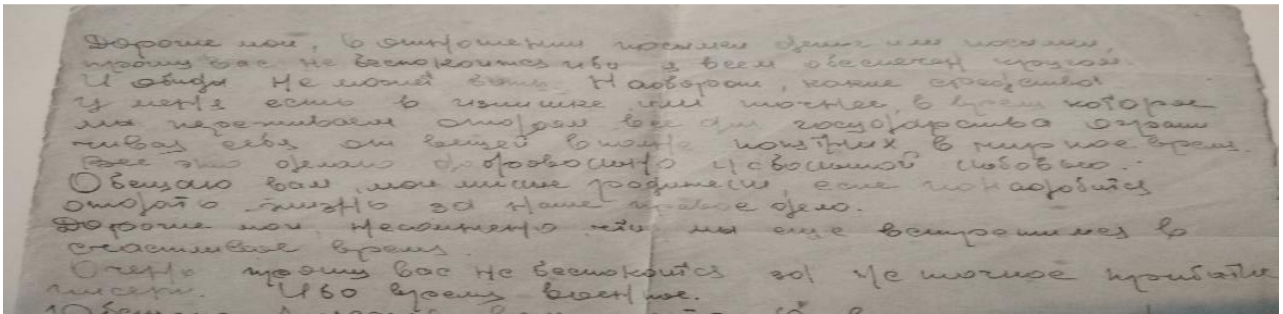 Дорогие мои, в отношении посылки денег или посылки,
прошу вас не беспокоится ибо я всем обеспечен кругом.
И обиды не может быть. Наоборот, какие средства
у меня есть в излишке или точнее, в время которое
мы переживаем отдаем все для государства ограни
чивая себя от вещей вполне понятных в мирное время.
Все это делаю добровольно и с большой любовью.
Обещаю вам, мои милые родители, если понадобится
отдать жизнь за наше правое дело.
Дорогие мои, несомненно что мы еще встретимся в
счастливое время.
Очень прошу вас не беспокоится за не точное прибытие
писем. Ибо время военное.